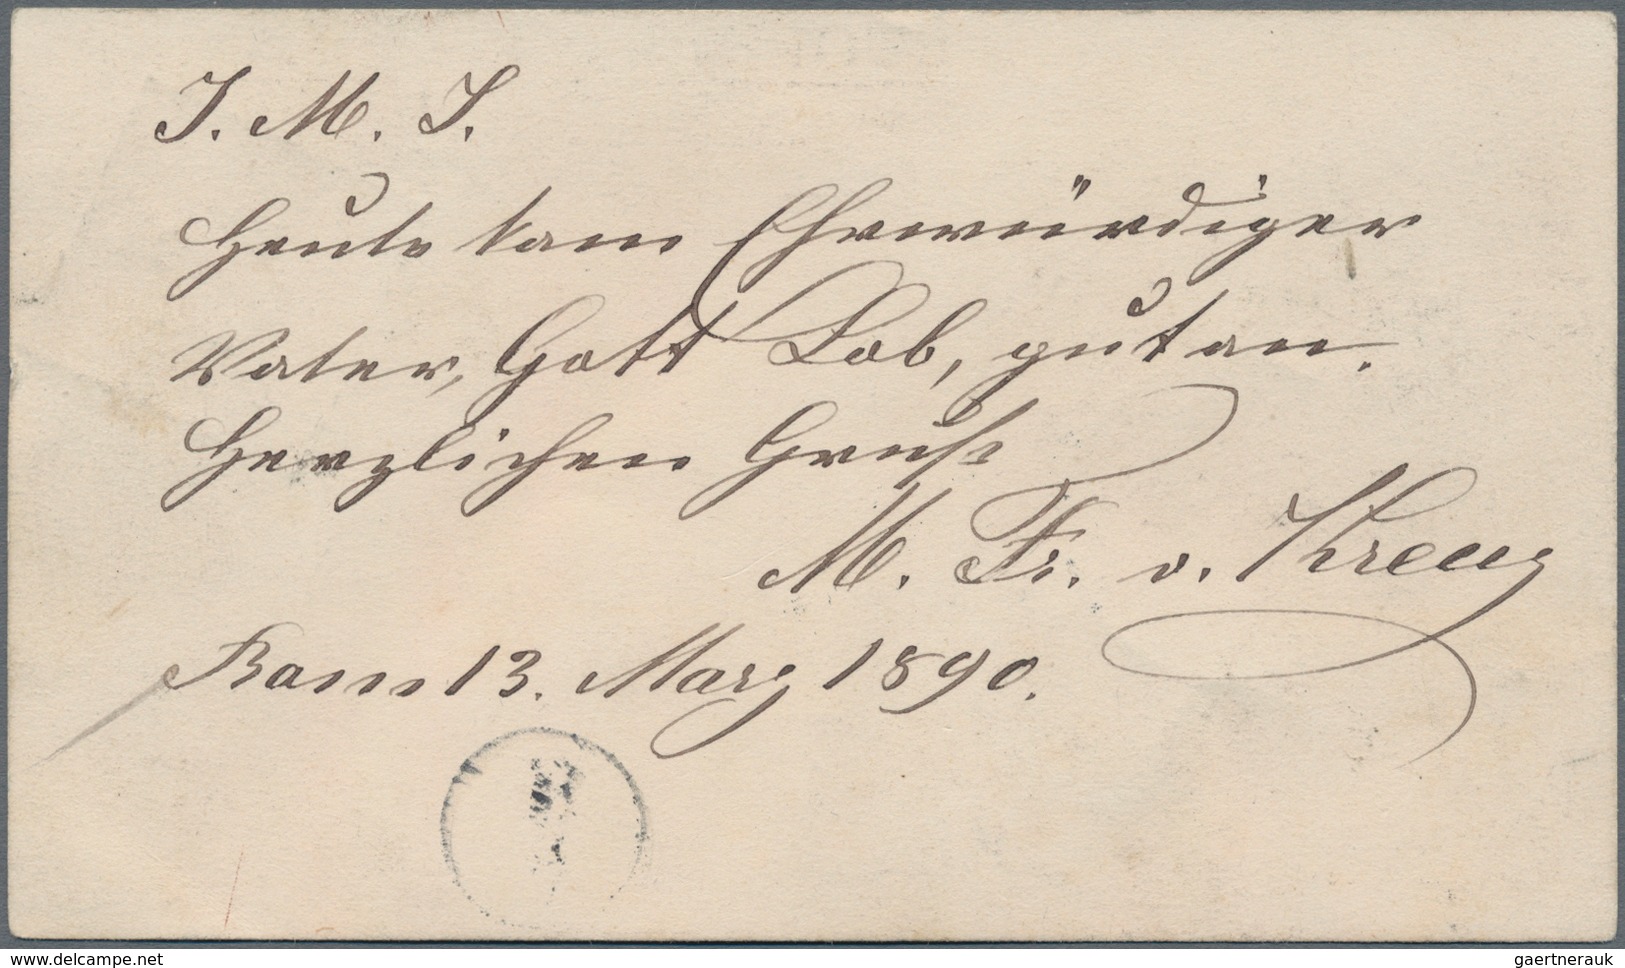 J. M. J.
Heute kam Ehrwürdiger
Vater, Gott Lob, gut an.
Herzlichen Gruß
M. Fr. v. Kreuz
Rom 13. März 1890.
www.delcampe.net
gaertnerauk